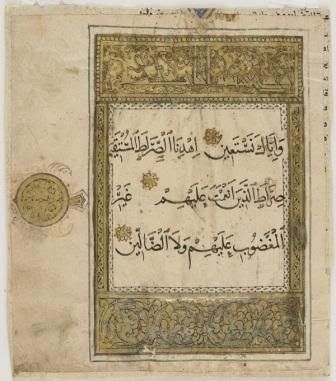 وَإِيَّاكَ نَسْتَعِينُ اِهْدِنَا الصِّرَاطَ الْمُسْتَقِيمَ
صِرَاطَ الَّذِينَ أَنْعَمْتَ عَلَيْهِمْ غَيْرِ
الْمَغْضُوبِ عَلَيْهِمْ وَلَا الضَّالِّينَ